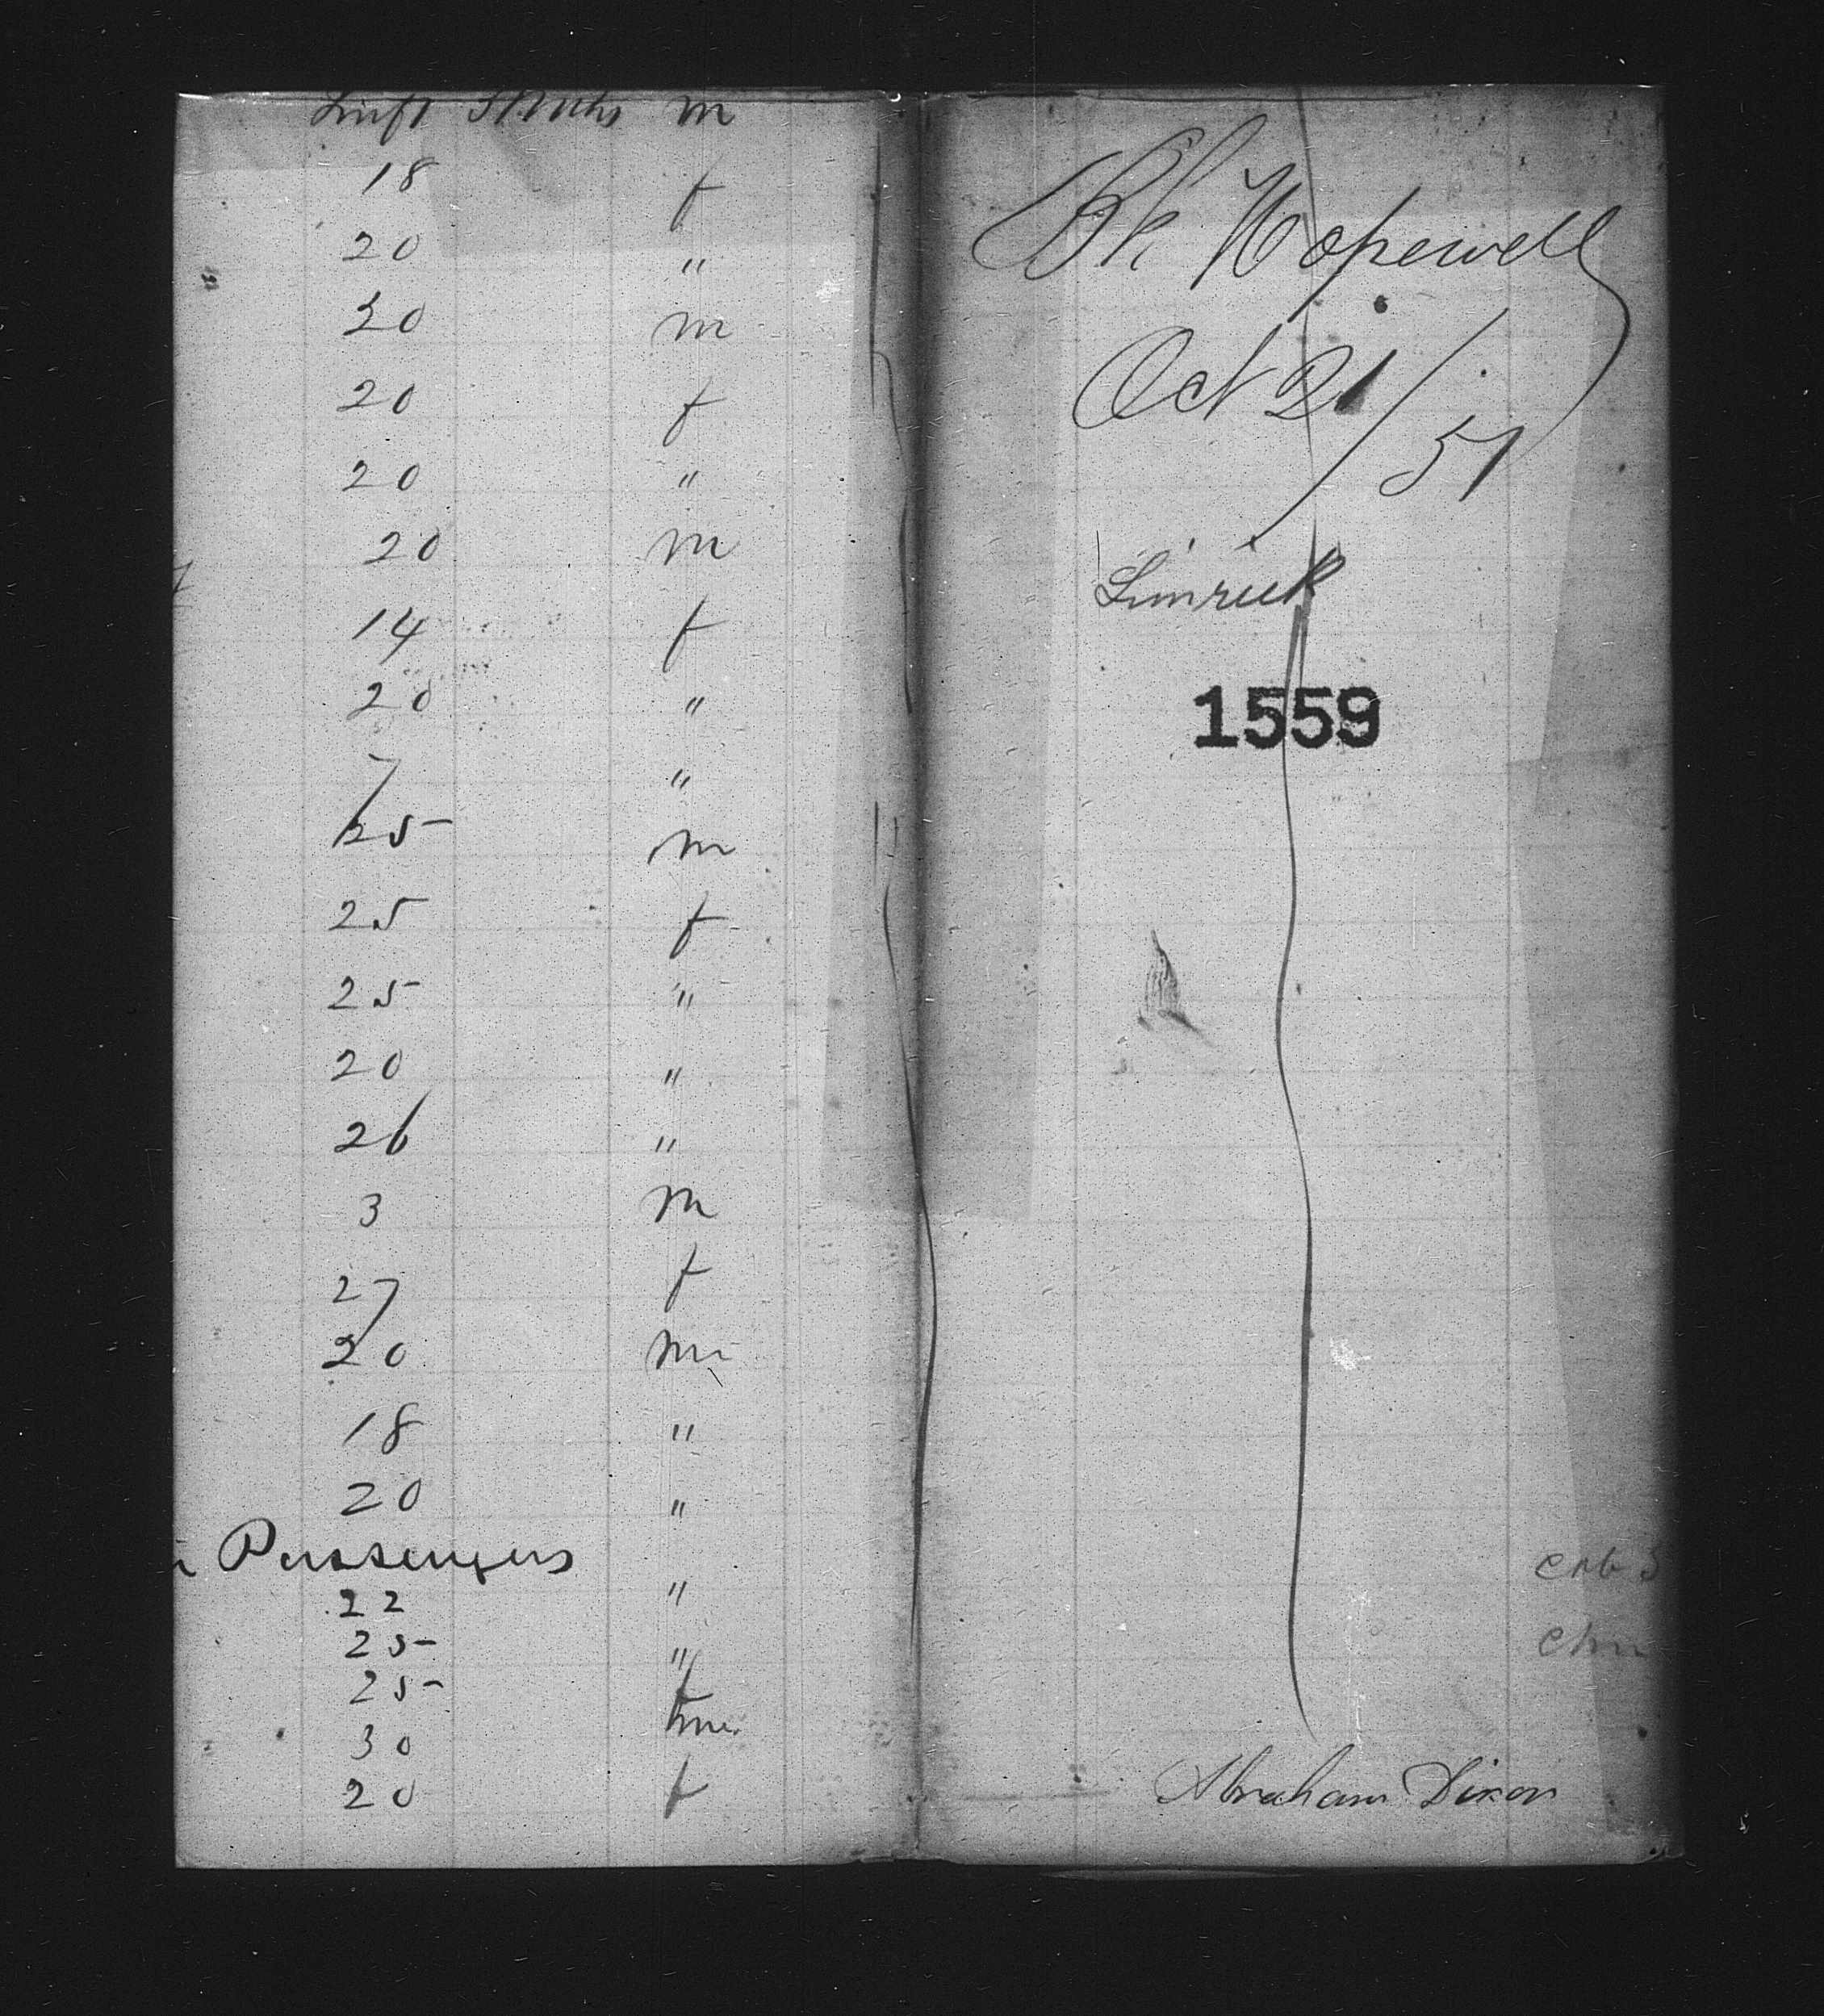 m
18 f
20 "
20 m
20 f
20 "
20 m
14 f
20 "
7 "
25 m
25 f
25 "
20 "
26 "
3 m
27 f
20 m
18 "
20 "
Passengers
22 "
25 "
25 f
30 m
20 f
Bk Hopewell
Oct 21/51
Limrick
1559
Abraham Dixon